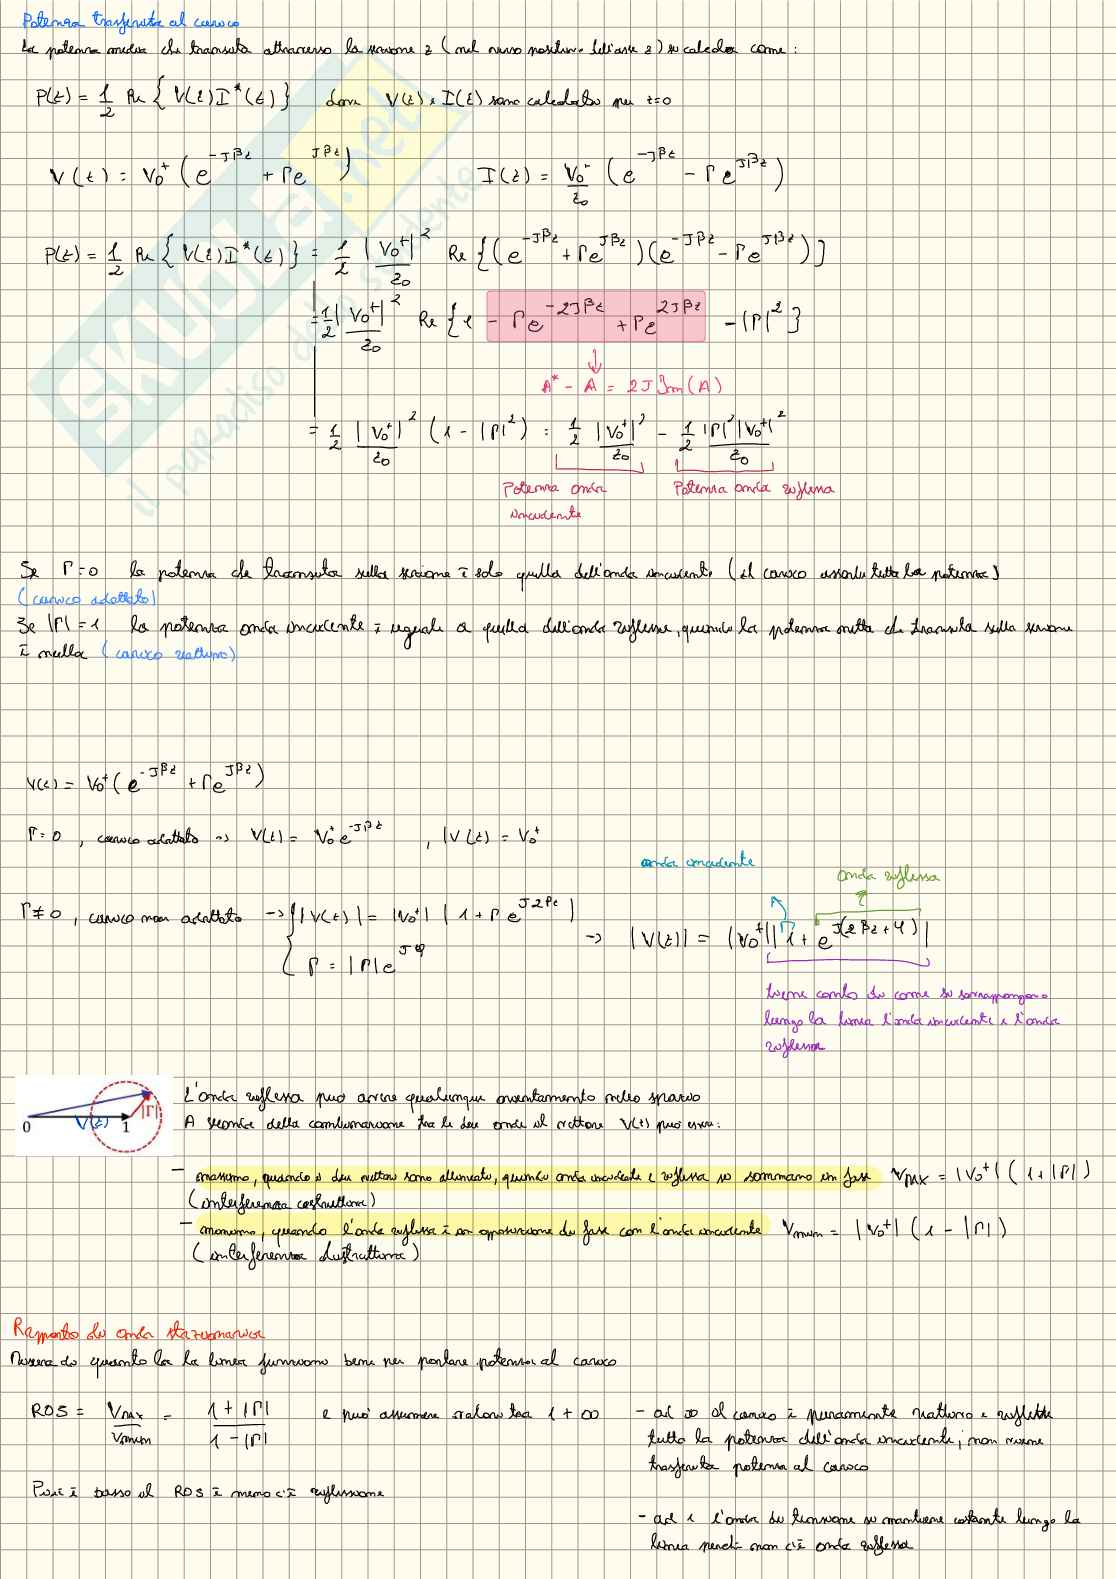 Potenza trasferita al carico
La potenza media che transita attraverso la sezione z (nel verso positivo dell'asse z) si calcola come:
P(z) = 1/2 Re { V(z) I*(z) } dove V(z) e I(z) sono calcolato per z=0
V(z) = V0+ ( e^-Jβz + Γe^Jβz )   I(z) = V0+/z0 ( e^-Jβz - Γe^Jβz )
P(z) = 1/2 Re { V(z) I*(z) } = 1/2 |V0+|^2/z0 Re { (e^-Jβz + Γe^Jβz)(e^-Jβz - Γe^Jβz) }
= 1/2 |V0+|^2/z0 Re { 1 - Γe^-2Jβz + Γe^2Jβz - |Γ|^2 }
A* - A = 2J Im(A)
= 1/2 |V0+|^2/z0 (1 - |Γ|^2) = 1/2 |V0+|^2/z0 - 1/2 |Γ|^2|V0+|^2/z0
Potenza onda incidente
Potenza onda riflessa
Se Γ=0 la potenza che transita sulla sezione è solo quella dell'onda incidente (il carico assorbe tutta la potenza)
(carico adattato)
Se |Γ|=1 la potenza onda incidente è uguale a quella dell'onda riflessa, quindi la potenza netta che transita sulla sezione
è nulla (carico reattivo)
V(z) = V0+ ( e^-Jβz + Γe^Jβz )
Γ=0 , carico adattato → V(z) = V0+ e^-Jβz , |V(z) = V0+
Γ≠0 , carico non adattato → { |V(z)| = |V0+| | 1 + Γ e^J2βz |
Γ = |Γ| e^Jφ
→ |V(z)| = |V0+| | 1 + e^J(2βz+φ) |
onda incidente
onda riflessa
tiene conto di come si sovrappongono
lungo la linea l'onda incidente e l'onda
riflessa
0 V(z) 1 |Γ|
L'onda riflessa può avere qualunque orientamento nello spazio
A seconda della combinazione tra le due onde il vettore V(z) può essere:
- massimo, quando i due vettori sono allineati, quindi onda incidente e riflessa si sommano in fase VMAX = |V0+| (1 + |Γ|)
(interferenza costruttiva)
- minimo, quando l'onda riflessa è in opposizione di fase con l'onda incidente Vmin = |V0+| (1 - |Γ|)
(interferenza distruttiva)
Rapporto di onda stazionaria
Misura di quanto la linea funziona bene per portare potenza al carico
ROS = VMAX/Vmin = 1+|Γ| / 1-|Γ| e può assumere valori tra 1 + ∞
- ad ∞ il carico è puramente reattivo e riflette
tutta la potenza dell'onda incidente, non viene
trasferita potenza al carico
Più è basso il ROS e meno c'è riflessione
- ad 1 l'onda di tensione si mantiene costante lungo la
linea perché non c'è onda riflessa
SKUOLA.net
il paradiso dello studente